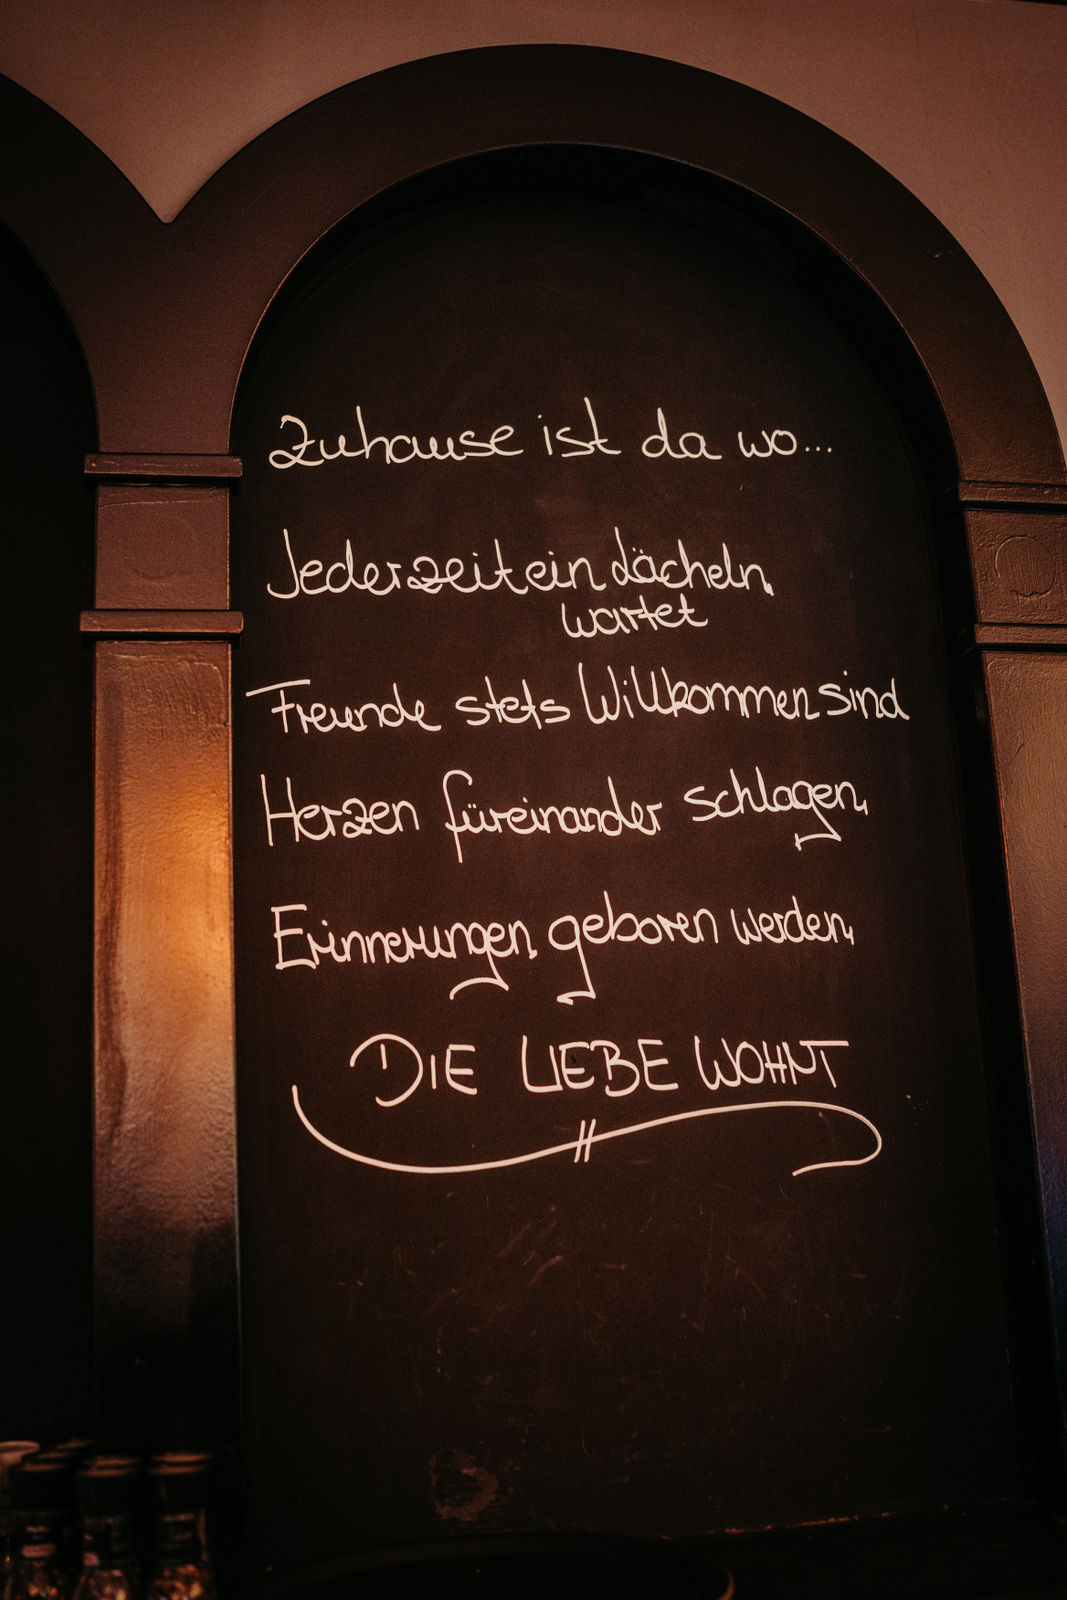 Zuhause ist da wo...
Jederzeit ein Lächeln,
wartet
Freunde stets Willkommen sind
Herzen füreinander schlagen,
Erinnerungen geboren werden,
DIE LIEBE WOHNT